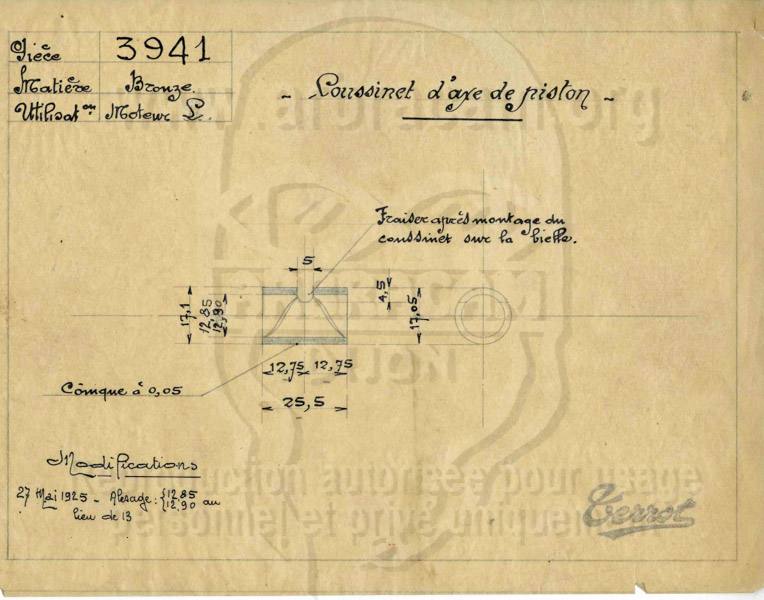 Pièce 3941
Matière Bronze.
Utilisat.on Moteur L.
- Coussinet d'axe de piston -
Fraiser après montage du
coussinet sur la bielle.
5
17,1
12,85
12,90
4,5
17,05
12,75 12,75
25,5
Cônique à 0,05
Modifications
27 Mai 1925 - Alesage : { 12.85
12.90 au
lieu de 13
Terrot
production autorisée pour usage
personnel et privé uniquement